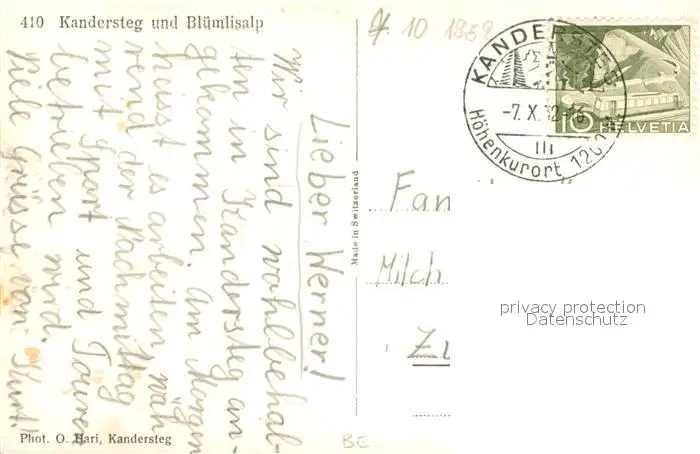 410 Kandersteg und Blümlisalp
Lieber Werner!
Wir sind wohlbehal-
ten in Kandersteg an-
gekommen. Am Morgen
heisst es arbeiten, wäh
rend der Nachmittag
mit Sport und Touren
betrieben wird.
Viele Grüsse von Kurt!
Phot. O. Hari, Kandersteg
Made in Switzerland
10 1952
KANDERSTEG
-7. X. 52-16
III
Höhenkurort 1200 m
10 HELVETIA
Fan
Milch
privacy protection
Datenschutz
BE